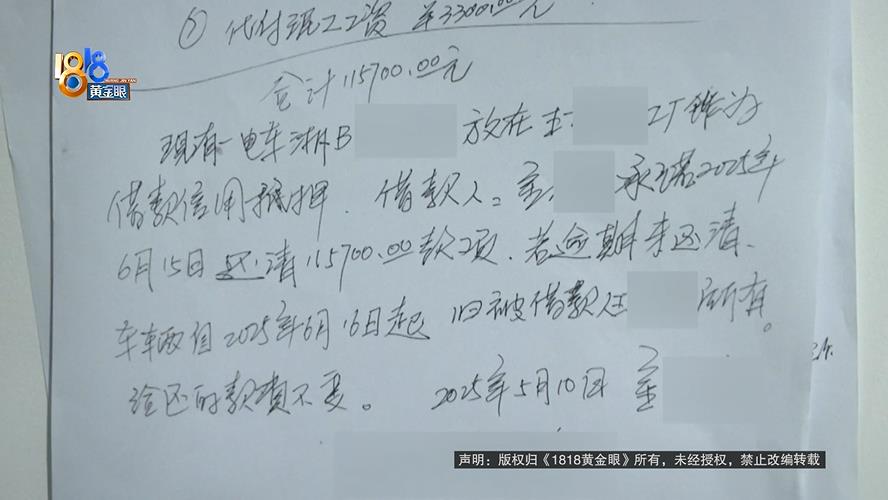 ② 代付职工工资 ¥3300.00元
1818
HUANG JIN YAN
黄金眼
合计115700.00元
现有一电车浙B 放在 工厂作为
借款信用抵押. 借款人: 承诺2025年
6月15日还清115700.00款项.若逾期未还清、
车辆自2025年6月16日起 归被借款人 所有。
该还的款项不变。 2025年5月10日
声明：版权归《1818黄金眼》所有，未经授权，禁止改编转载